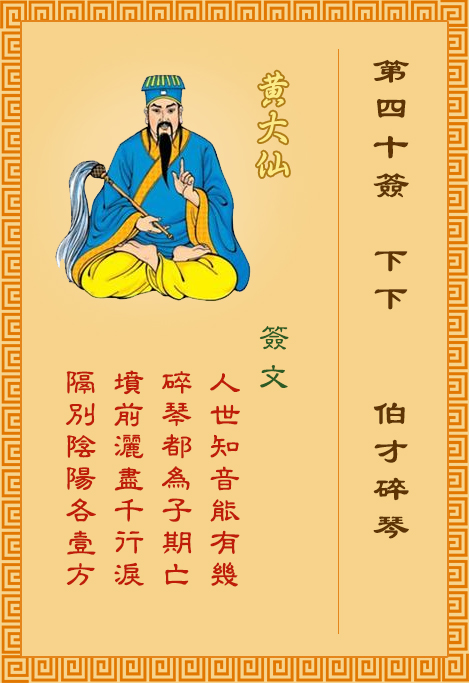 第四十簽 下下 伯才碎琴
黃大仙
簽文
人世知音能有幾
碎琴都為子期亡
墳前灑盡千行淚
隔別陰陽各壹方